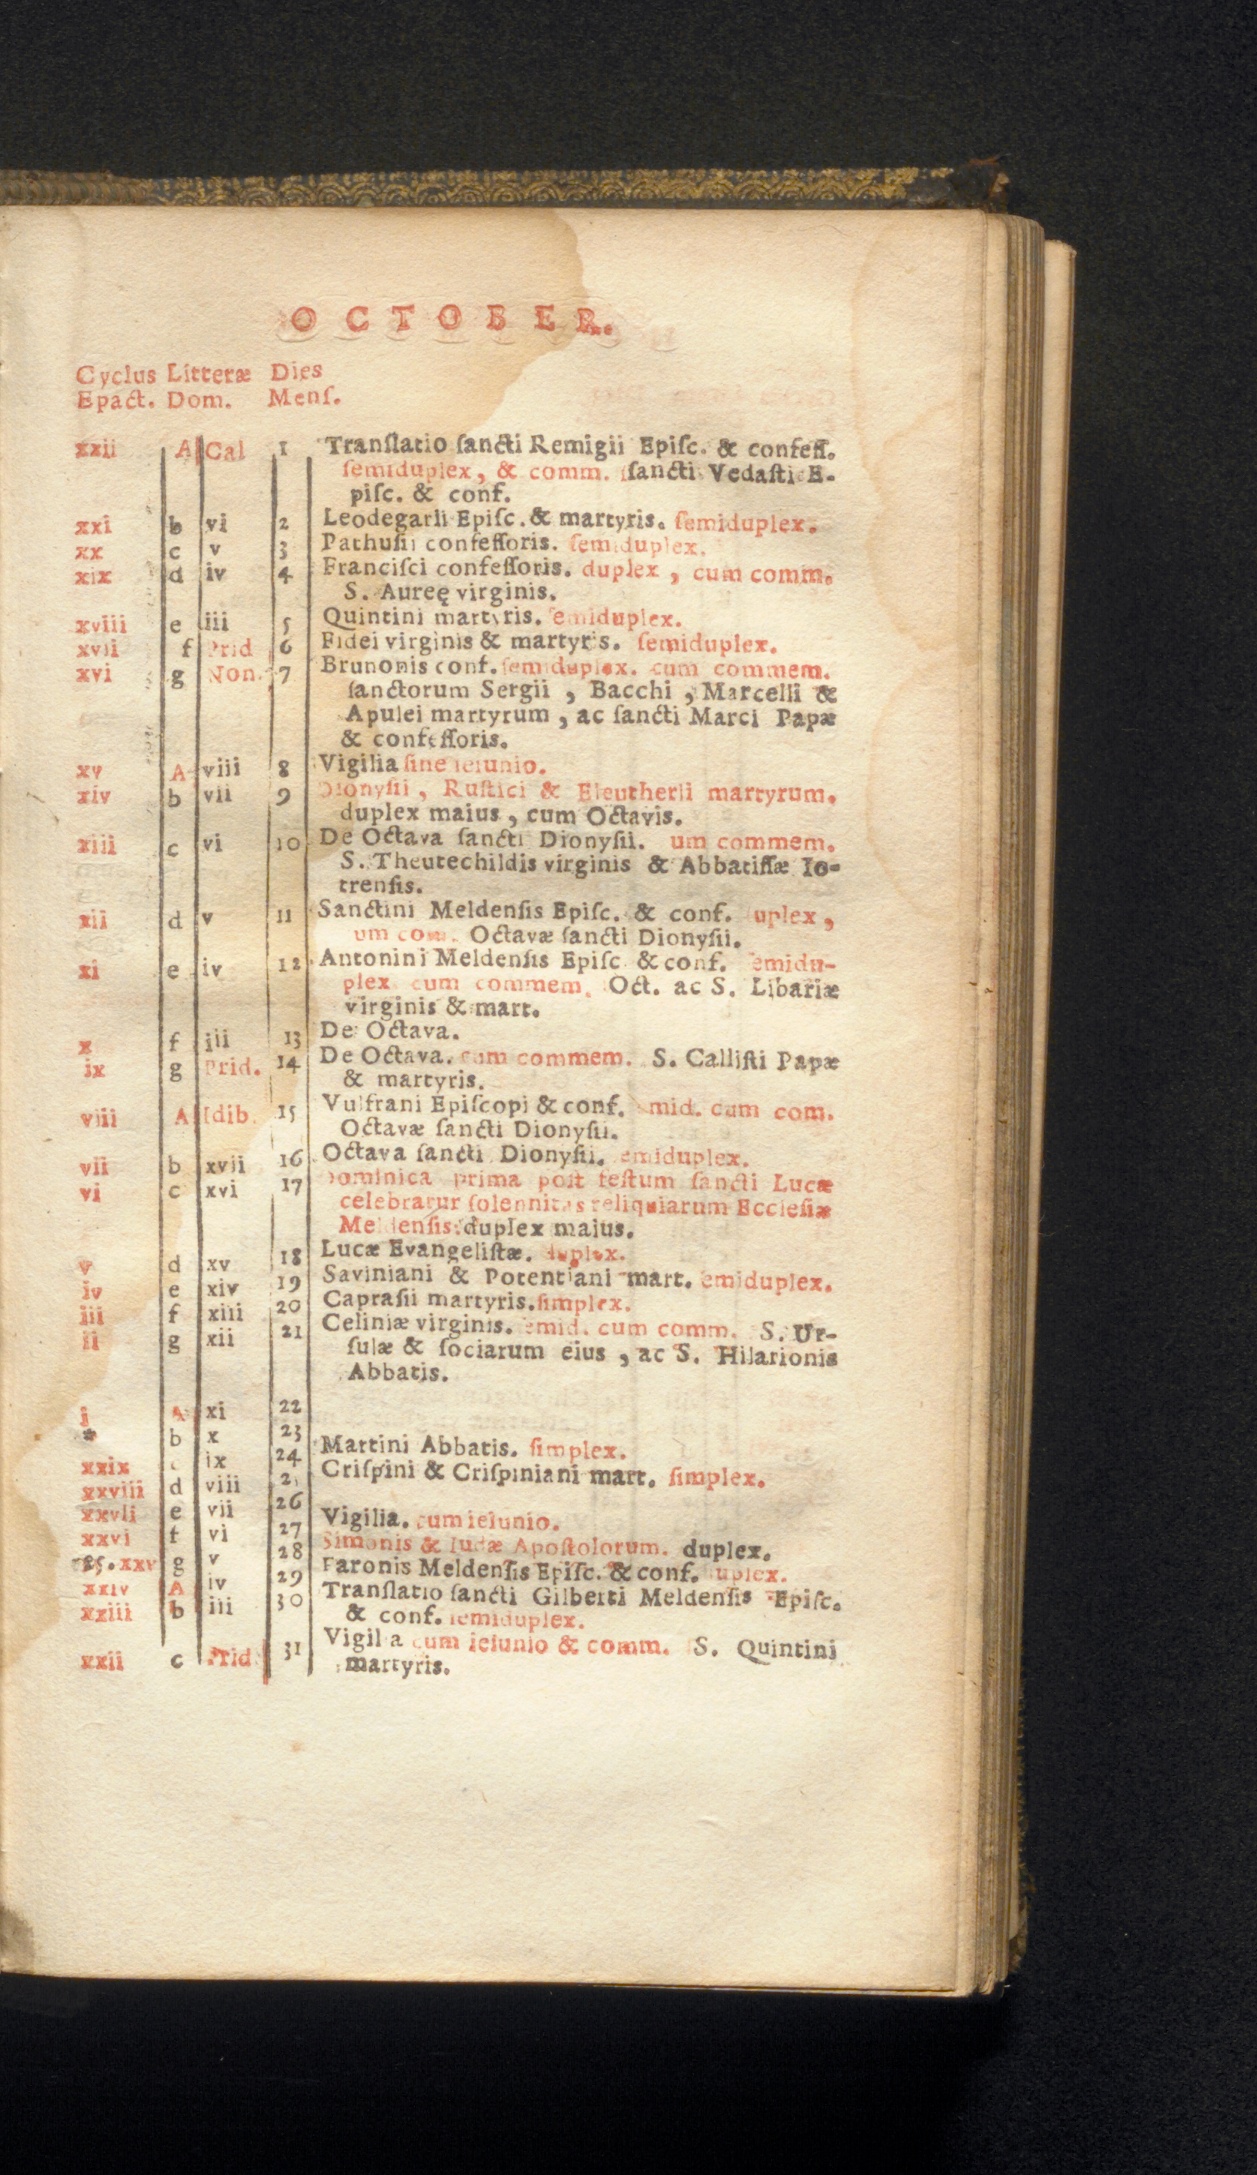 OCTOBER.
Cyclus Litteræ Dies
Epact. Dom. Mens.
xxii A Cal 1 Tranſlatio ſancti Remigii Epiſc. & confeſſ.
ſemiduplex, & comm. ſancti Vedaſti E-
piſc. & conf.
xxi b vi 2 Leodegarii Epiſc. & martyris. ſemiduplex.
xx c v 3 Pathuſii confeſſoris. ſemiduplex.
xix d iv 4 Franciſci confeſſoris. duplex, cum comm.
S. Aureę virginis.
xviii e iii 5 Quintini martyris. ſemiduplex.
xvii f Prid 6 Fidei virginis & martyris. ſemiduplex.
xvi g Non. 7 Brunonis conf. ſemiduplex. cum commem.
ſanctorum Sergii, Bacchi, Marcelli &
Apulei martyrum, ac ſancti Marci Papæ
& confeſſoris.
xv A viii 8 Vigilia ſine ieiunio.
xiv b vii 9 Dionyſii, Ruſtici & Eleutherii martyrum.
duplex maius, cum Octavis.
xiii c vi 10 De Octava ſancti Dionyſii. um commem.
S. Theutechildis virginis & Abbatiſſæ Io-
trenſis.
xii d v 11 Sanctini Meldenſis Epiſc. & conf. uplex,
um com. Octavæ ſancti Dionyſii.
xi e iv 12 Antonini Meldenſis Epiſc & conf. emidu-
plex cum commem. Oct. ac S. Libariæ
virginis & mart.
x f iii 13 De Octava.
ix g Prid. 14 De Octava. cum commem. S. Calliſti Papæ
& martyris.
viii A Idib. 15 Vulfrani Epiſcopi & conf. mid. cum com.
Octavæ ſancti Dionyſii.
vii b xvii 16 Octava ſancti Dionyſii. emiduplex.
vi c xvi 17 Dominica prima poſt feſtum ſancti Lucæ
celebratur ſolennitas reliquiarum Eccleſiæ
Meldenſis. duplex maius.
v d xv 18 Lucæ Evangeliſtæ. duplex.
iv e xiv 19 Saviniani & Potentiani mart. emiduplex.
iii f xiii 20 Capraſii martyris. ſimplex.
ii g xii 21 Celiniæ virginis. emid. cum comm. S. Ur-
ſulæ & ſociarum eius, ac S. Hilarionis
Abbatis.
i A xi 22
* b x 23
xxix c ix 24 Martini Abbatis. ſimplex.
xxviii d viii 25 Criſpini & Criſpiniani mart. ſimplex.
xxvii e vii 26
xxvi f vi 27 Vigilia. cum ieiunio.
25. xxv g v 28 Simonis & Iudæ Apoſtolorum. duplex.
xxiv A iv 29 Faronis Meldenſis Epiſc. & conf. uplex.
xxiii b iii 30 Tranſlatio ſancti Gilberti Meldenſis Epiſc.
& conf. ſemiduplex.
xxii c Prid 31 Vigilia cum ieiunio & comm. S. Quintini
martyris.